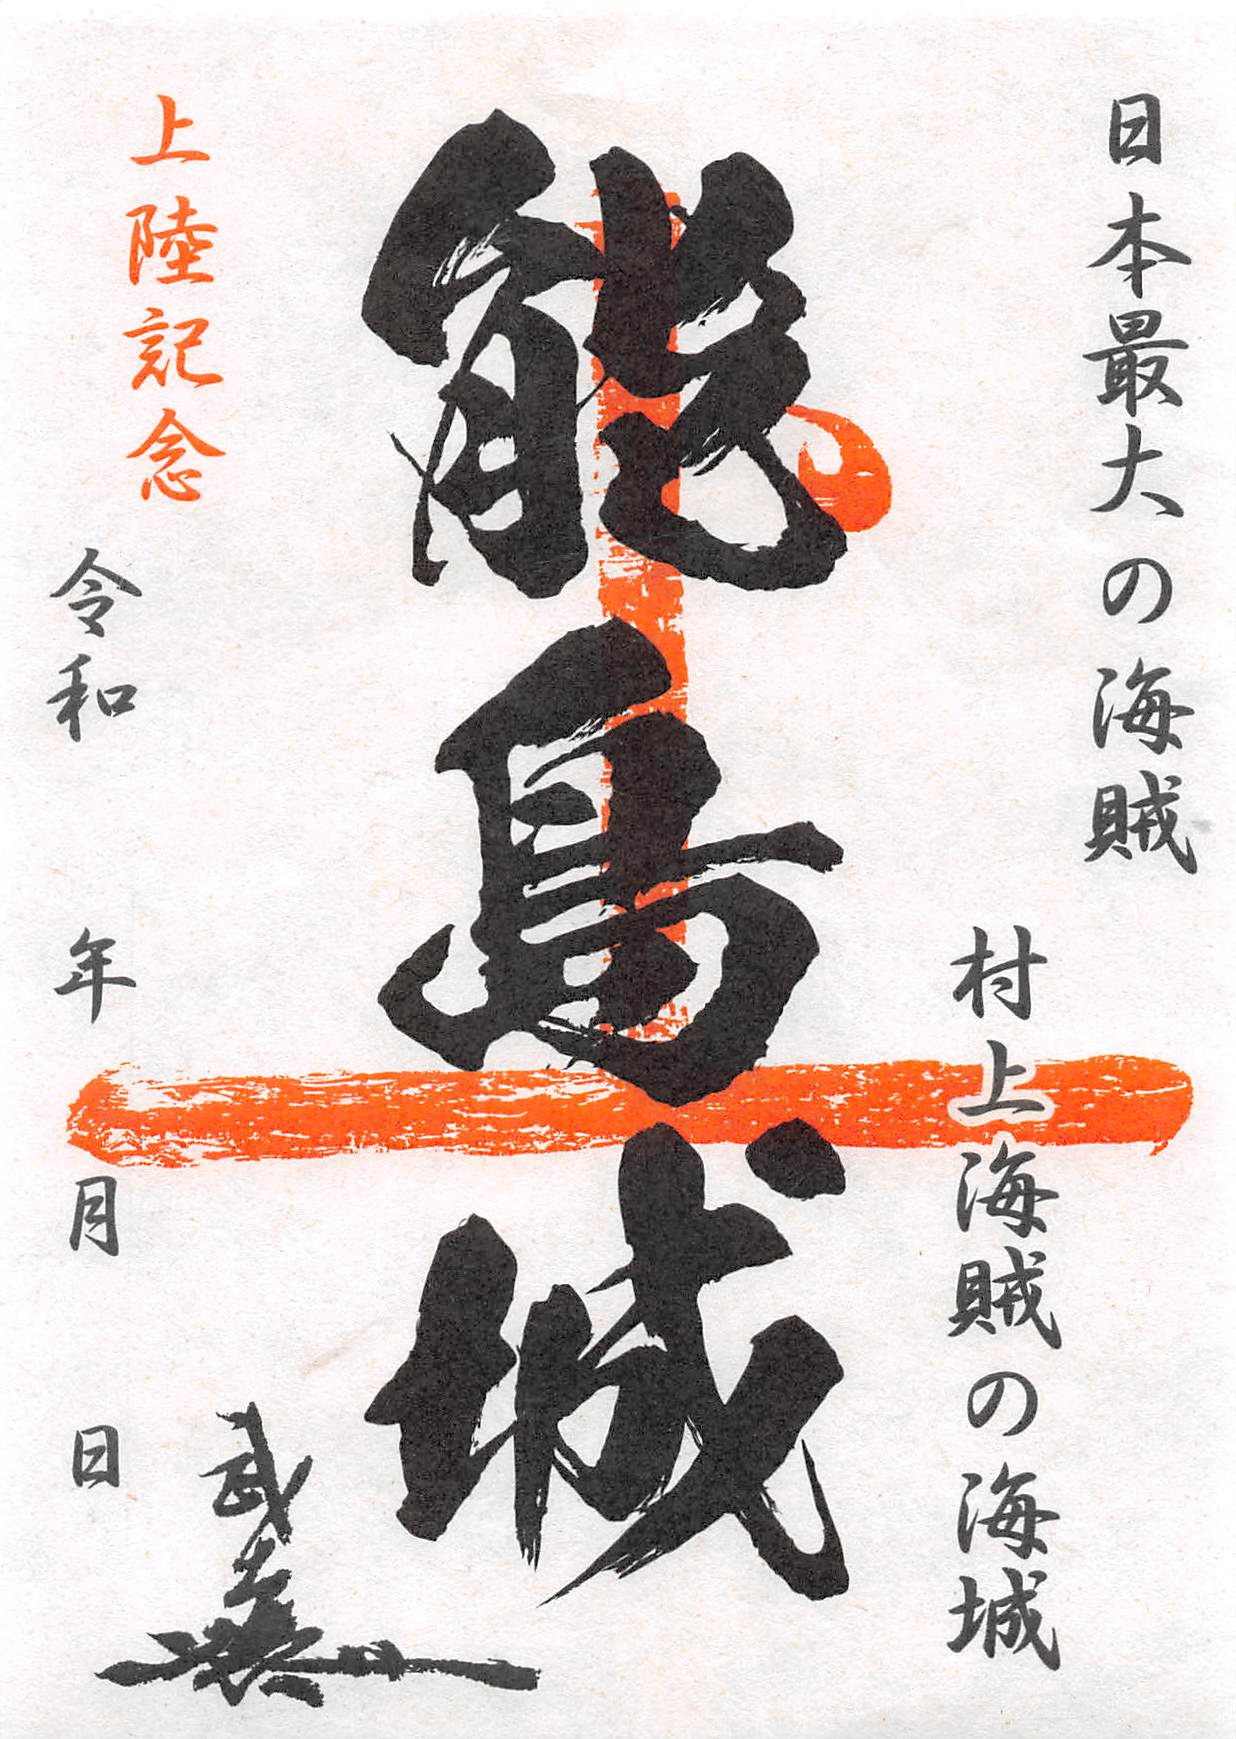 日本最大の海賊
村上海賊の海城
能島城
上陸記念
令和 年 月 日
武吉